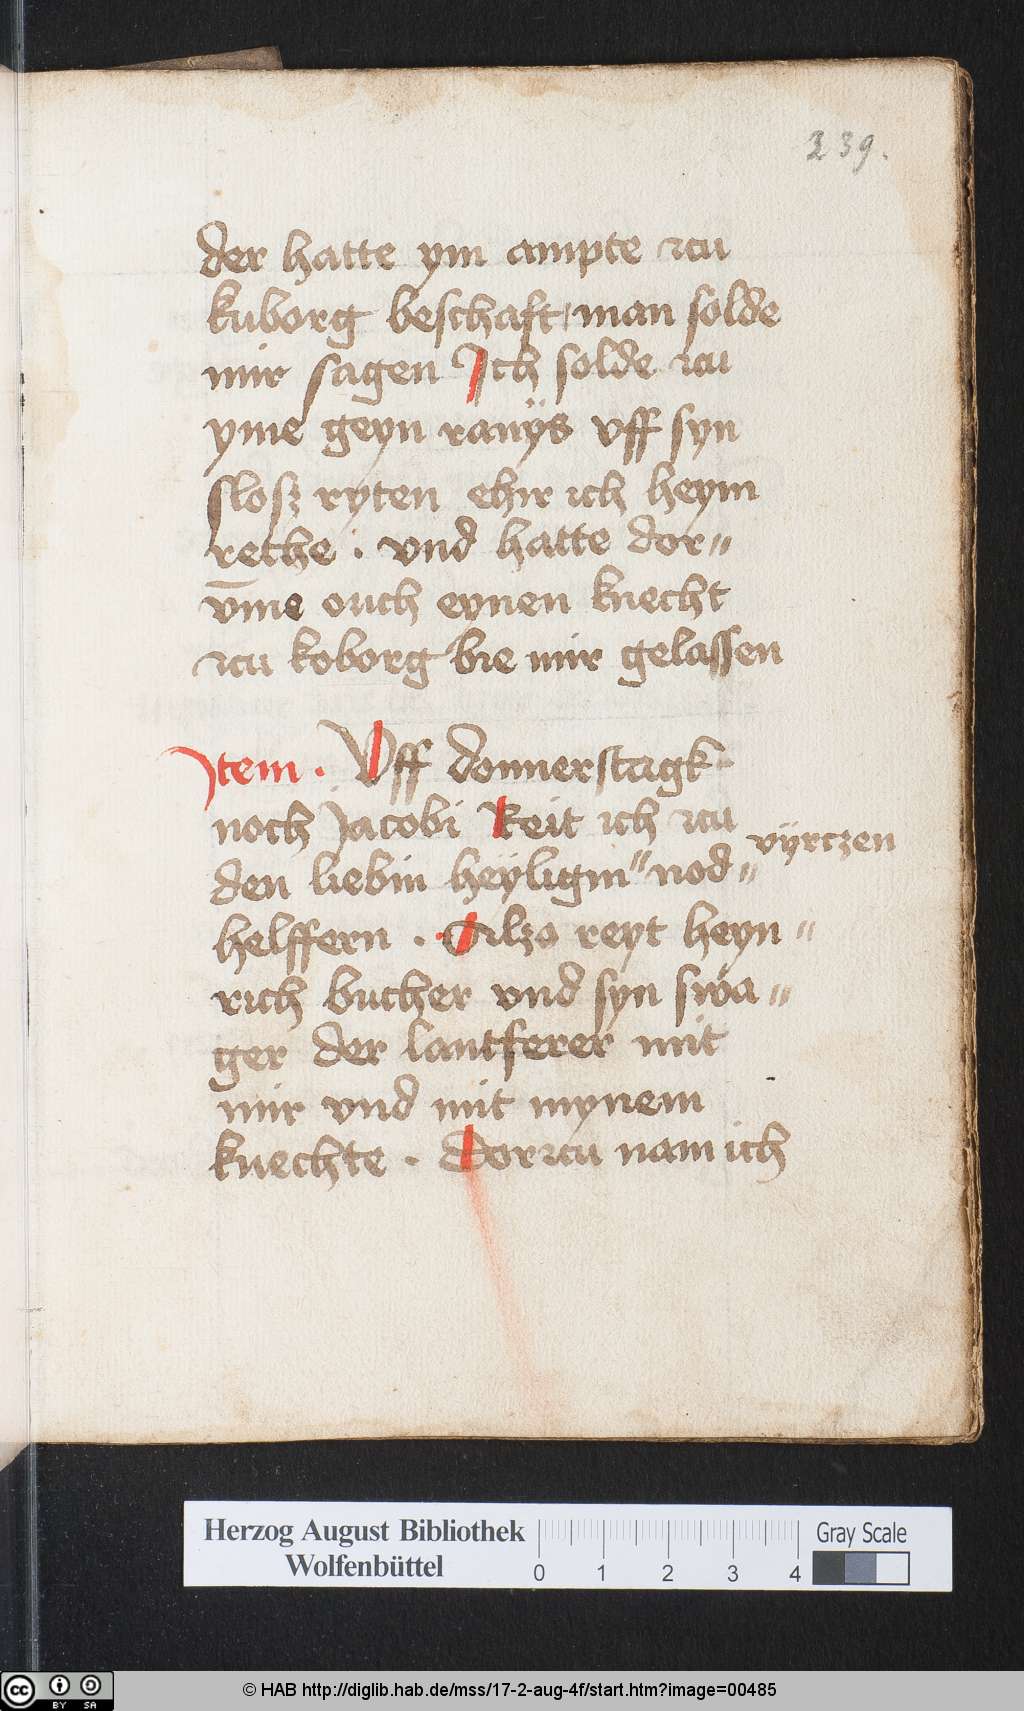 239.
der hatte ym ampte zcu
kuborg beschaft man solde
mir sagen Ich solde zcu
yme geyn ranÿs vff syn
slosz ryten ehir ich heym
rethe . vnd hatte dor〃
v̄me ouch eynen knecht
zcu koborg bie mir gelassen
Item . Vff donnerstagk
noch Jacobi Reit ich zcu vÿrczen
den liebin heÿligin〃 nod〃
helffern . Alzo reyt heyn〃
rich bucher vnd syn swa〃
ger der lantferer mit
mir vnd mit mynem
knechte . Dorzcu nam ich
Herzog August Bibliothek
Wolfenbüttel
0 1 2 3 4
Gray Scale
cc BY SA
© HAB http://diglib.hab.de/mss/17-2-aug-4f/start.htm?image=00485